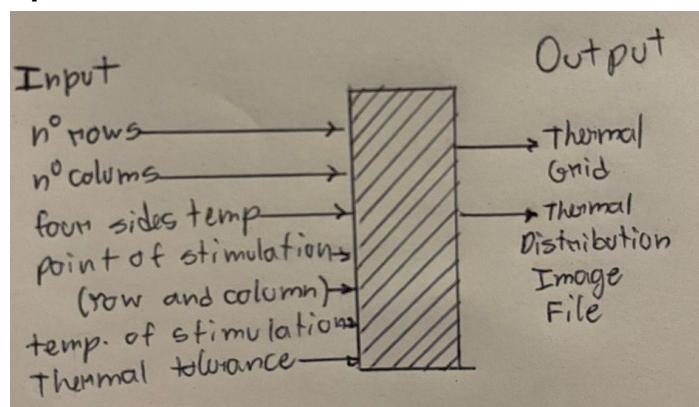 Input
Output
n° rows
n° colums
four sides temp
point of stimulation
(row and column)
temp. of stimulation
Thermal tolurance
Thermal
Grid
Thermal
Distribution
Image
File